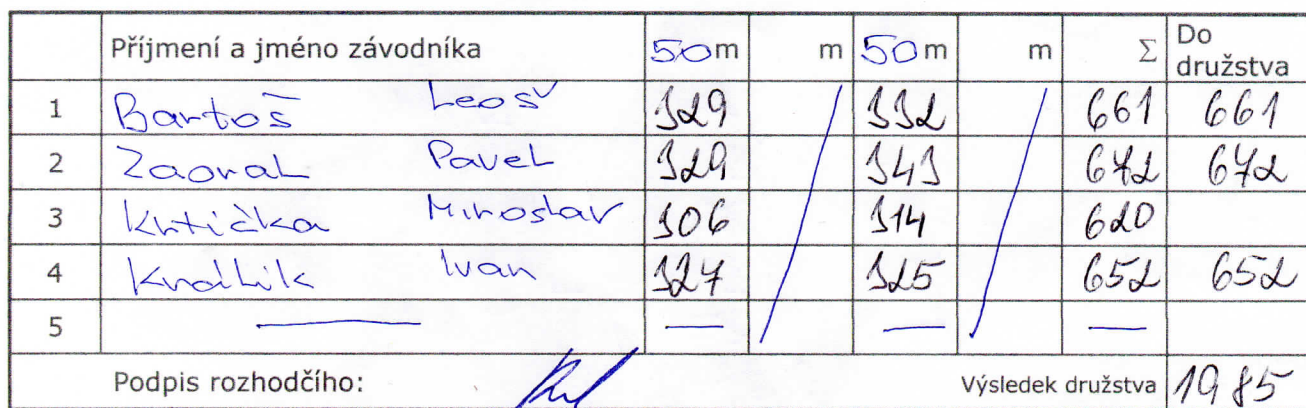 Příjmení a jméno závodníka 50m m 50m m Σ Do družstva
1 Bartoš Leoš 329 332 661 661
2 Zaoral Pavel 329 343 672 672
3 Krtička Miroslav 306 314 620
4 Králik Ivan 327 325 652 652
5 — — — —
Podpis rozhodčího: Výsledek družstva 1985